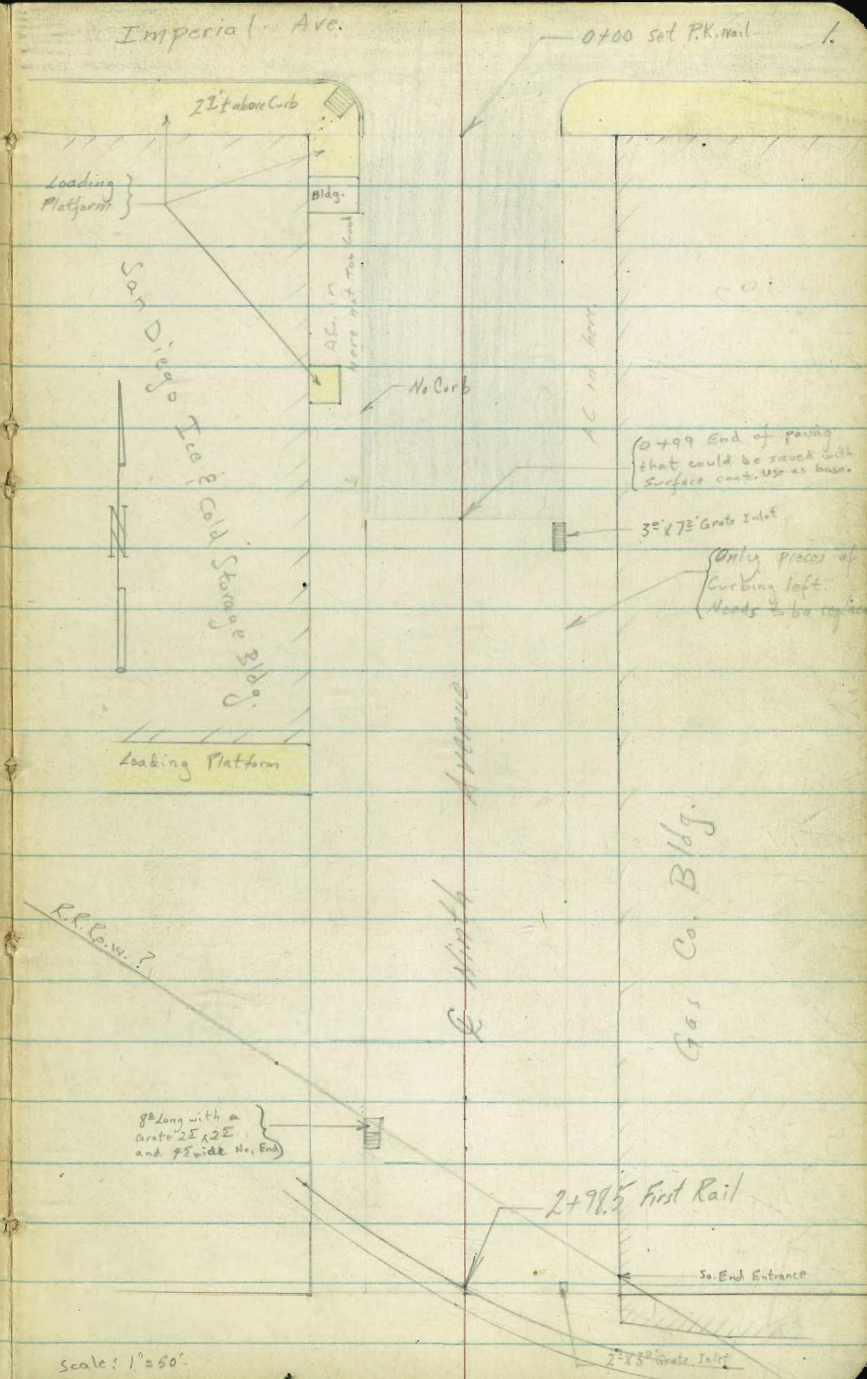 Imperial Ave.
0+00 set P.K. nail
1.
2 1'± above Curb
Loading
Platform
Bldg.
A.C. in
here not too Good
San Diego Ice & Cold Storage Bldg.
No Curb
AC in here
0+99 End of paving
that could be saved with
Surface coat. Use as base.
Grate Inlet
Only pieces of
Curbing left
Needs to be
Loading Platform
℄ Ninth Avenue
Gas Co. Bldg.
R.R. R.o.w. ?
Long with a
Grate
and wide No. End
2+98.5 First Rail
So. End Entrance
Grate Inlet
Scale: 1"=50'